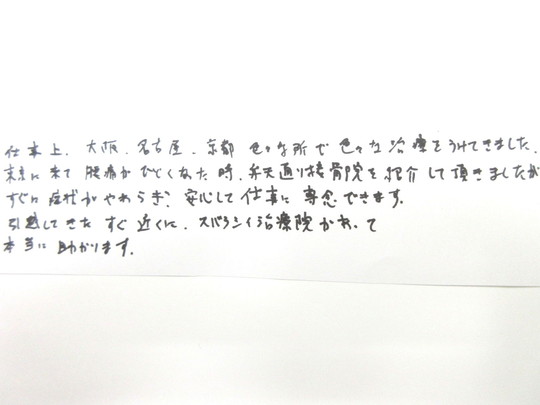 仕事上、大阪、名古屋、京都 色々な所で色々な治療をうけてきました。
東京に来て 腰痛がひどくなった時、弁天通り接骨院を紹介して頂きましたが
すぐに症状がやわらぎ、安心して仕事に専念できます。
引越してきた すぐ近くに、スバラシイ治療院があって
本当に助かります。